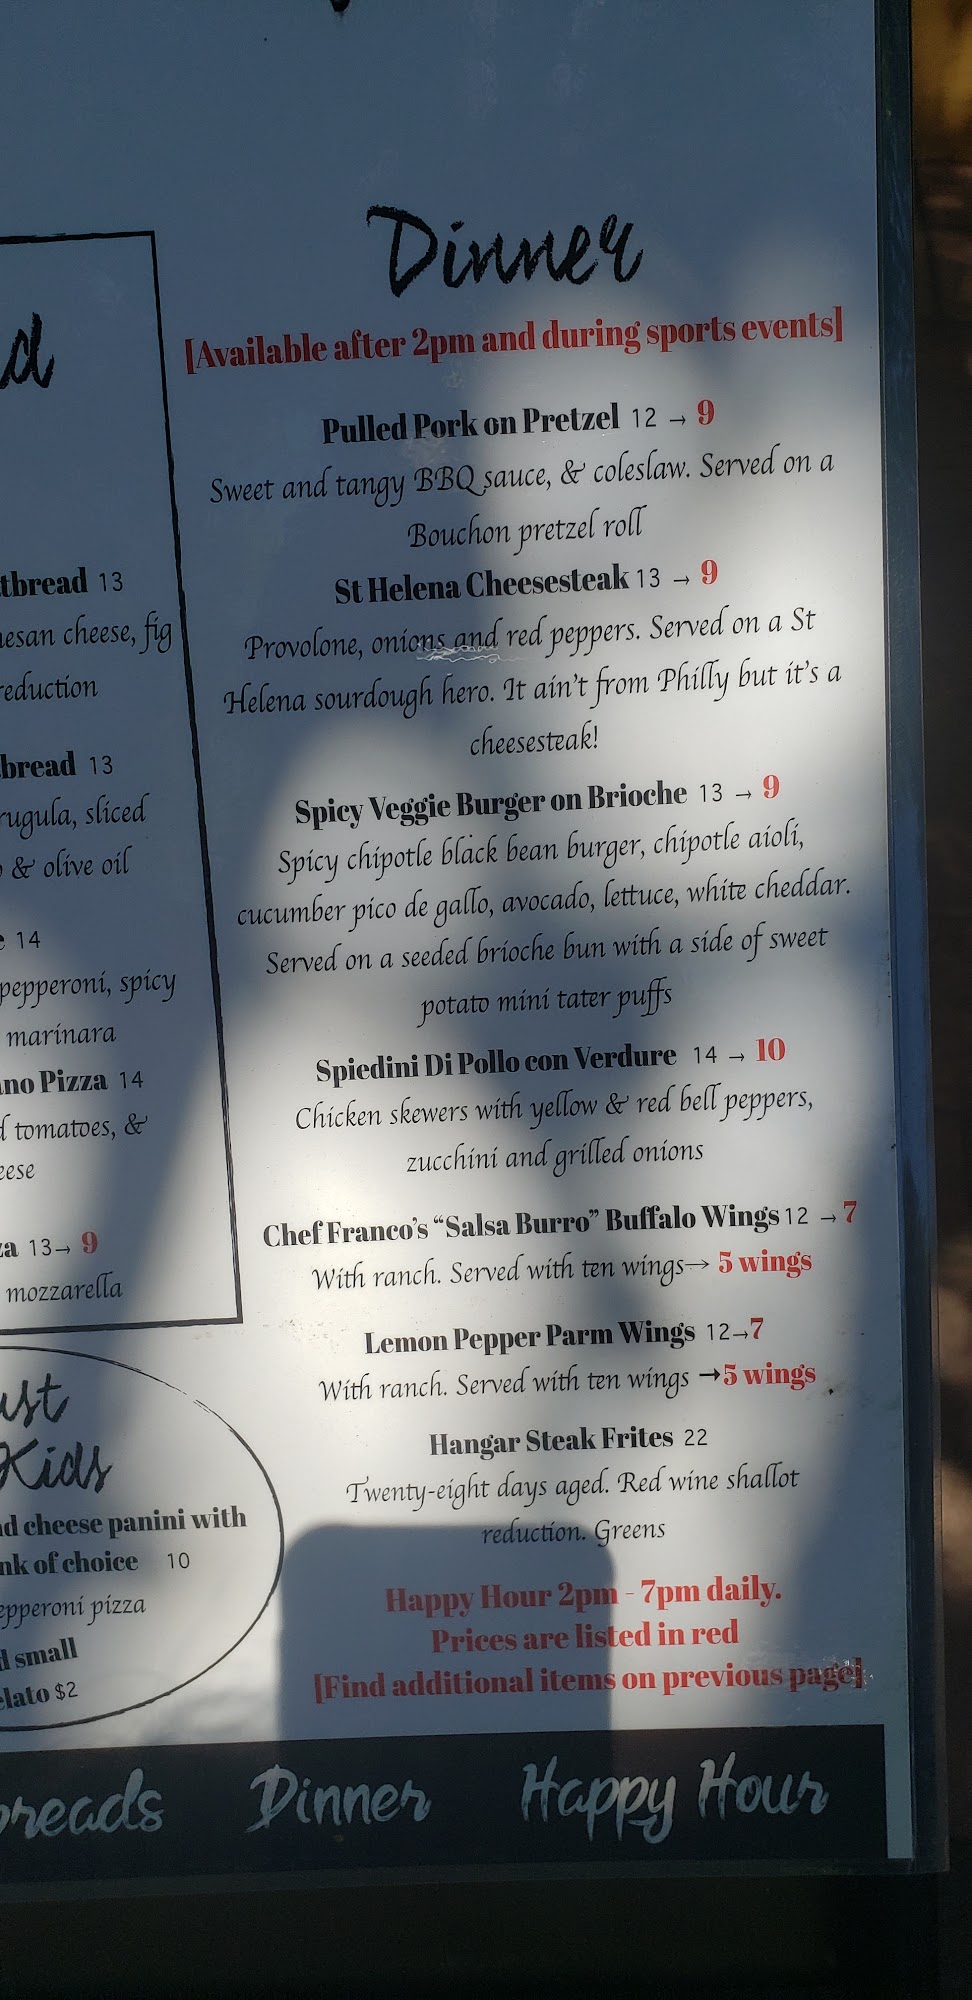 Dinner
[Available after 2pm and during sports events]
Pulled Pork on Pretzel 12 → 9
Sweet and tangy BBQ sauce, & coleslaw. Served on a
Bouchon pretzel roll
St Helena Cheesesteak 13 → 9
Provolone, onions and red peppers. Served on a St
Helena sourdough hero. It ain't from Philly but it's a
cheesesteak!
Spicy Veggie Burger on Brioche 13 → 9
Spicy chipotle black bean burger, chipotle aioli,
cucumber pico de gallo, avocado, lettuce, white cheddar.
Served on a seeded brioche bun with a side of sweet
potato mini tater puffs
Spiedini Di Pollo con Verdure 14 → 10
Chicken skewers with yellow & red bell peppers,
zucchini and grilled onions
Chef Franco's “Salsa Burro” Buffalo Wings 12 → 7
With ranch. Served with ten wings→ 5 wings
Lemon Pepper Parm Wings 12→7
With ranch. Served with ten wings →5 wings
Hangar Steak Frites 22
Twenty-eight days aged. Red wine shallot
reduction. Greens
Happy Hour 2pm - 7pm daily.
Prices are listed in red
[Find additional items on previous page]
13
cheese, fig
reduction
13
sliced
& olive oil
14
pepperoni, spicy
marinara
Pizza 14
tomatoes, &
13→ 9
mozzarella
Kids
cheese panini with
of choice 10
pizza
small
$2
Dinner Happy Hour